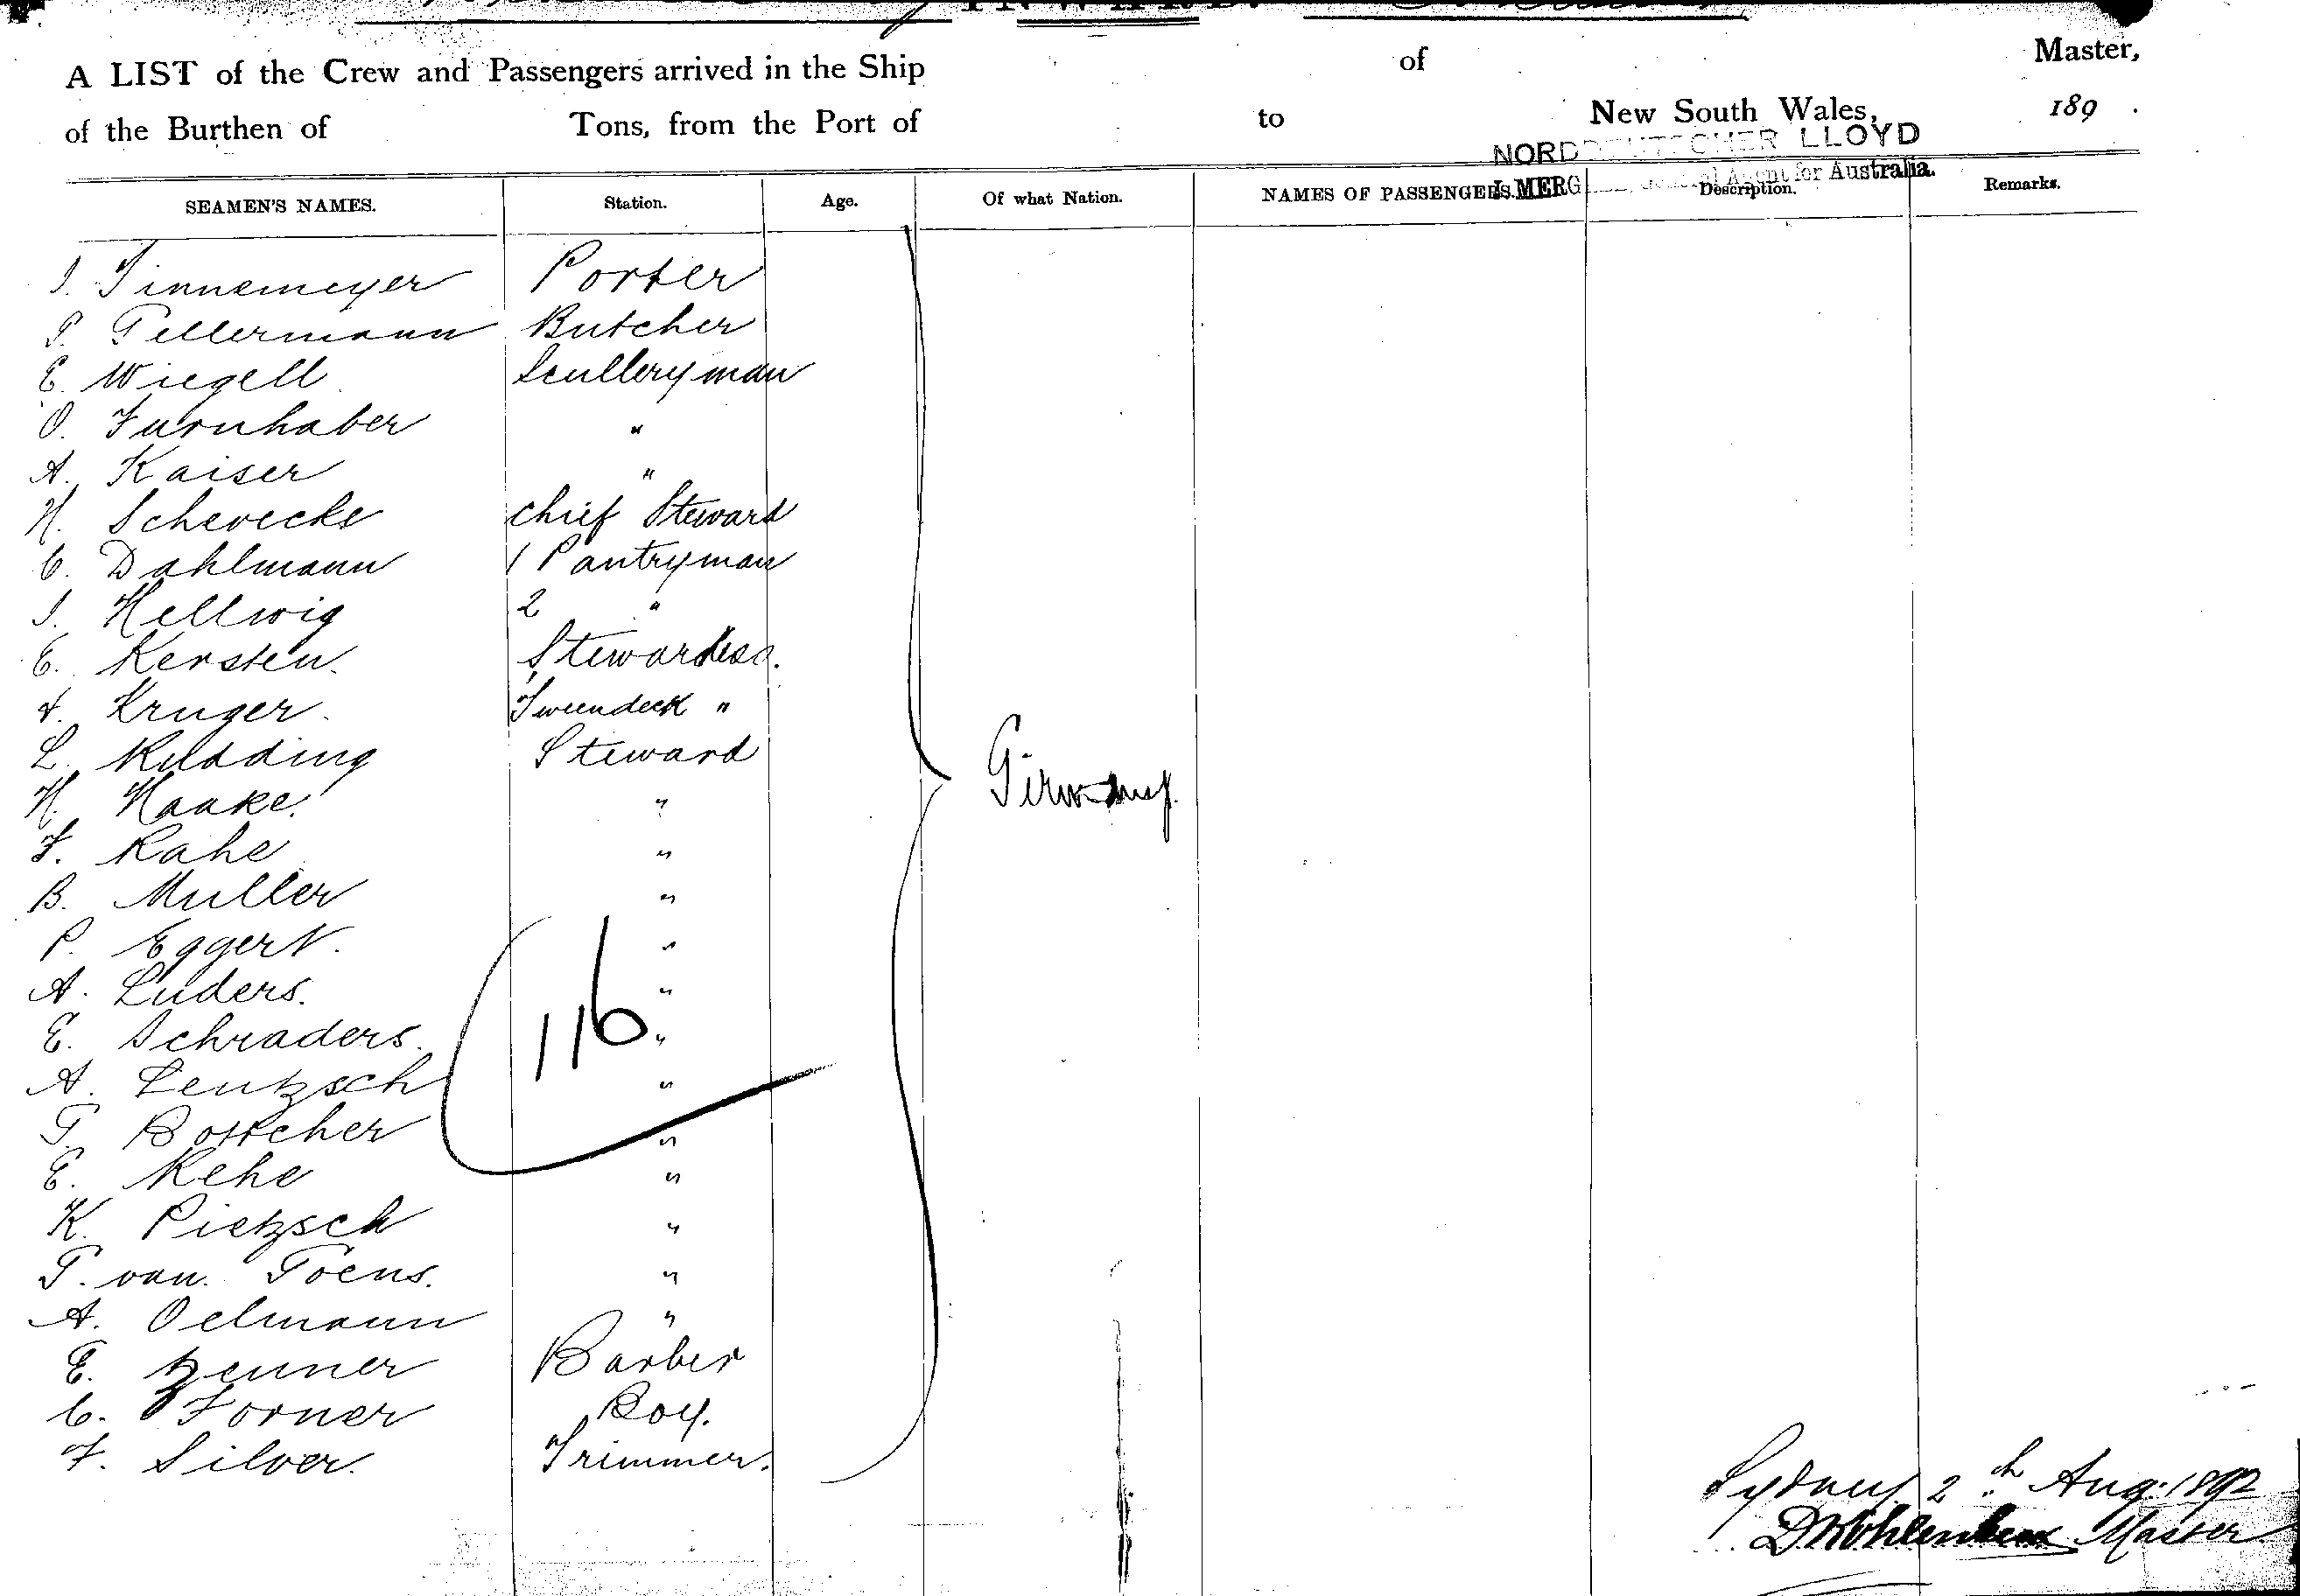 INWARD.
A LIST of the Crew and Passengers arrived in the Ship of Master,
of the Burthen of Tons, from the Port of to New South Wales, 189 .
NORDDEUTSCHER LLOYD
General Agent for Australia.
SEAMEN'S NAMES. Station. Age. Of what Nation. NAMES OF PASSENGERS. Description. Remarks.
J. Tinnemeyer Porter
P. Gellermann Butcher
E. Wiegell Sculleryman
O. Furnhaber "
A. Kaiser "
H. Schevecke chief Steward
C. Dahlmann 1 Pantryman
J. Hellwig 2 "
E. Kersten. Stewardess.
Kruger. Tweendeck "
L. Rudding Steward
Germany.
H. Haake. "
F. Rahe "
B. Muller "
P. Eggert. "
A. Luders. "
116
E. Schraders. "
A. Lentzsch "
G. Bottcher "
E. Rehe "
K. Pietzsch "
G. van. Goens. "
A. Oelmann "
E. Zenner Barber
C. Forner Boy.
F. Silver. Trimmer.
Sydney 2th Aug: 1892
Master